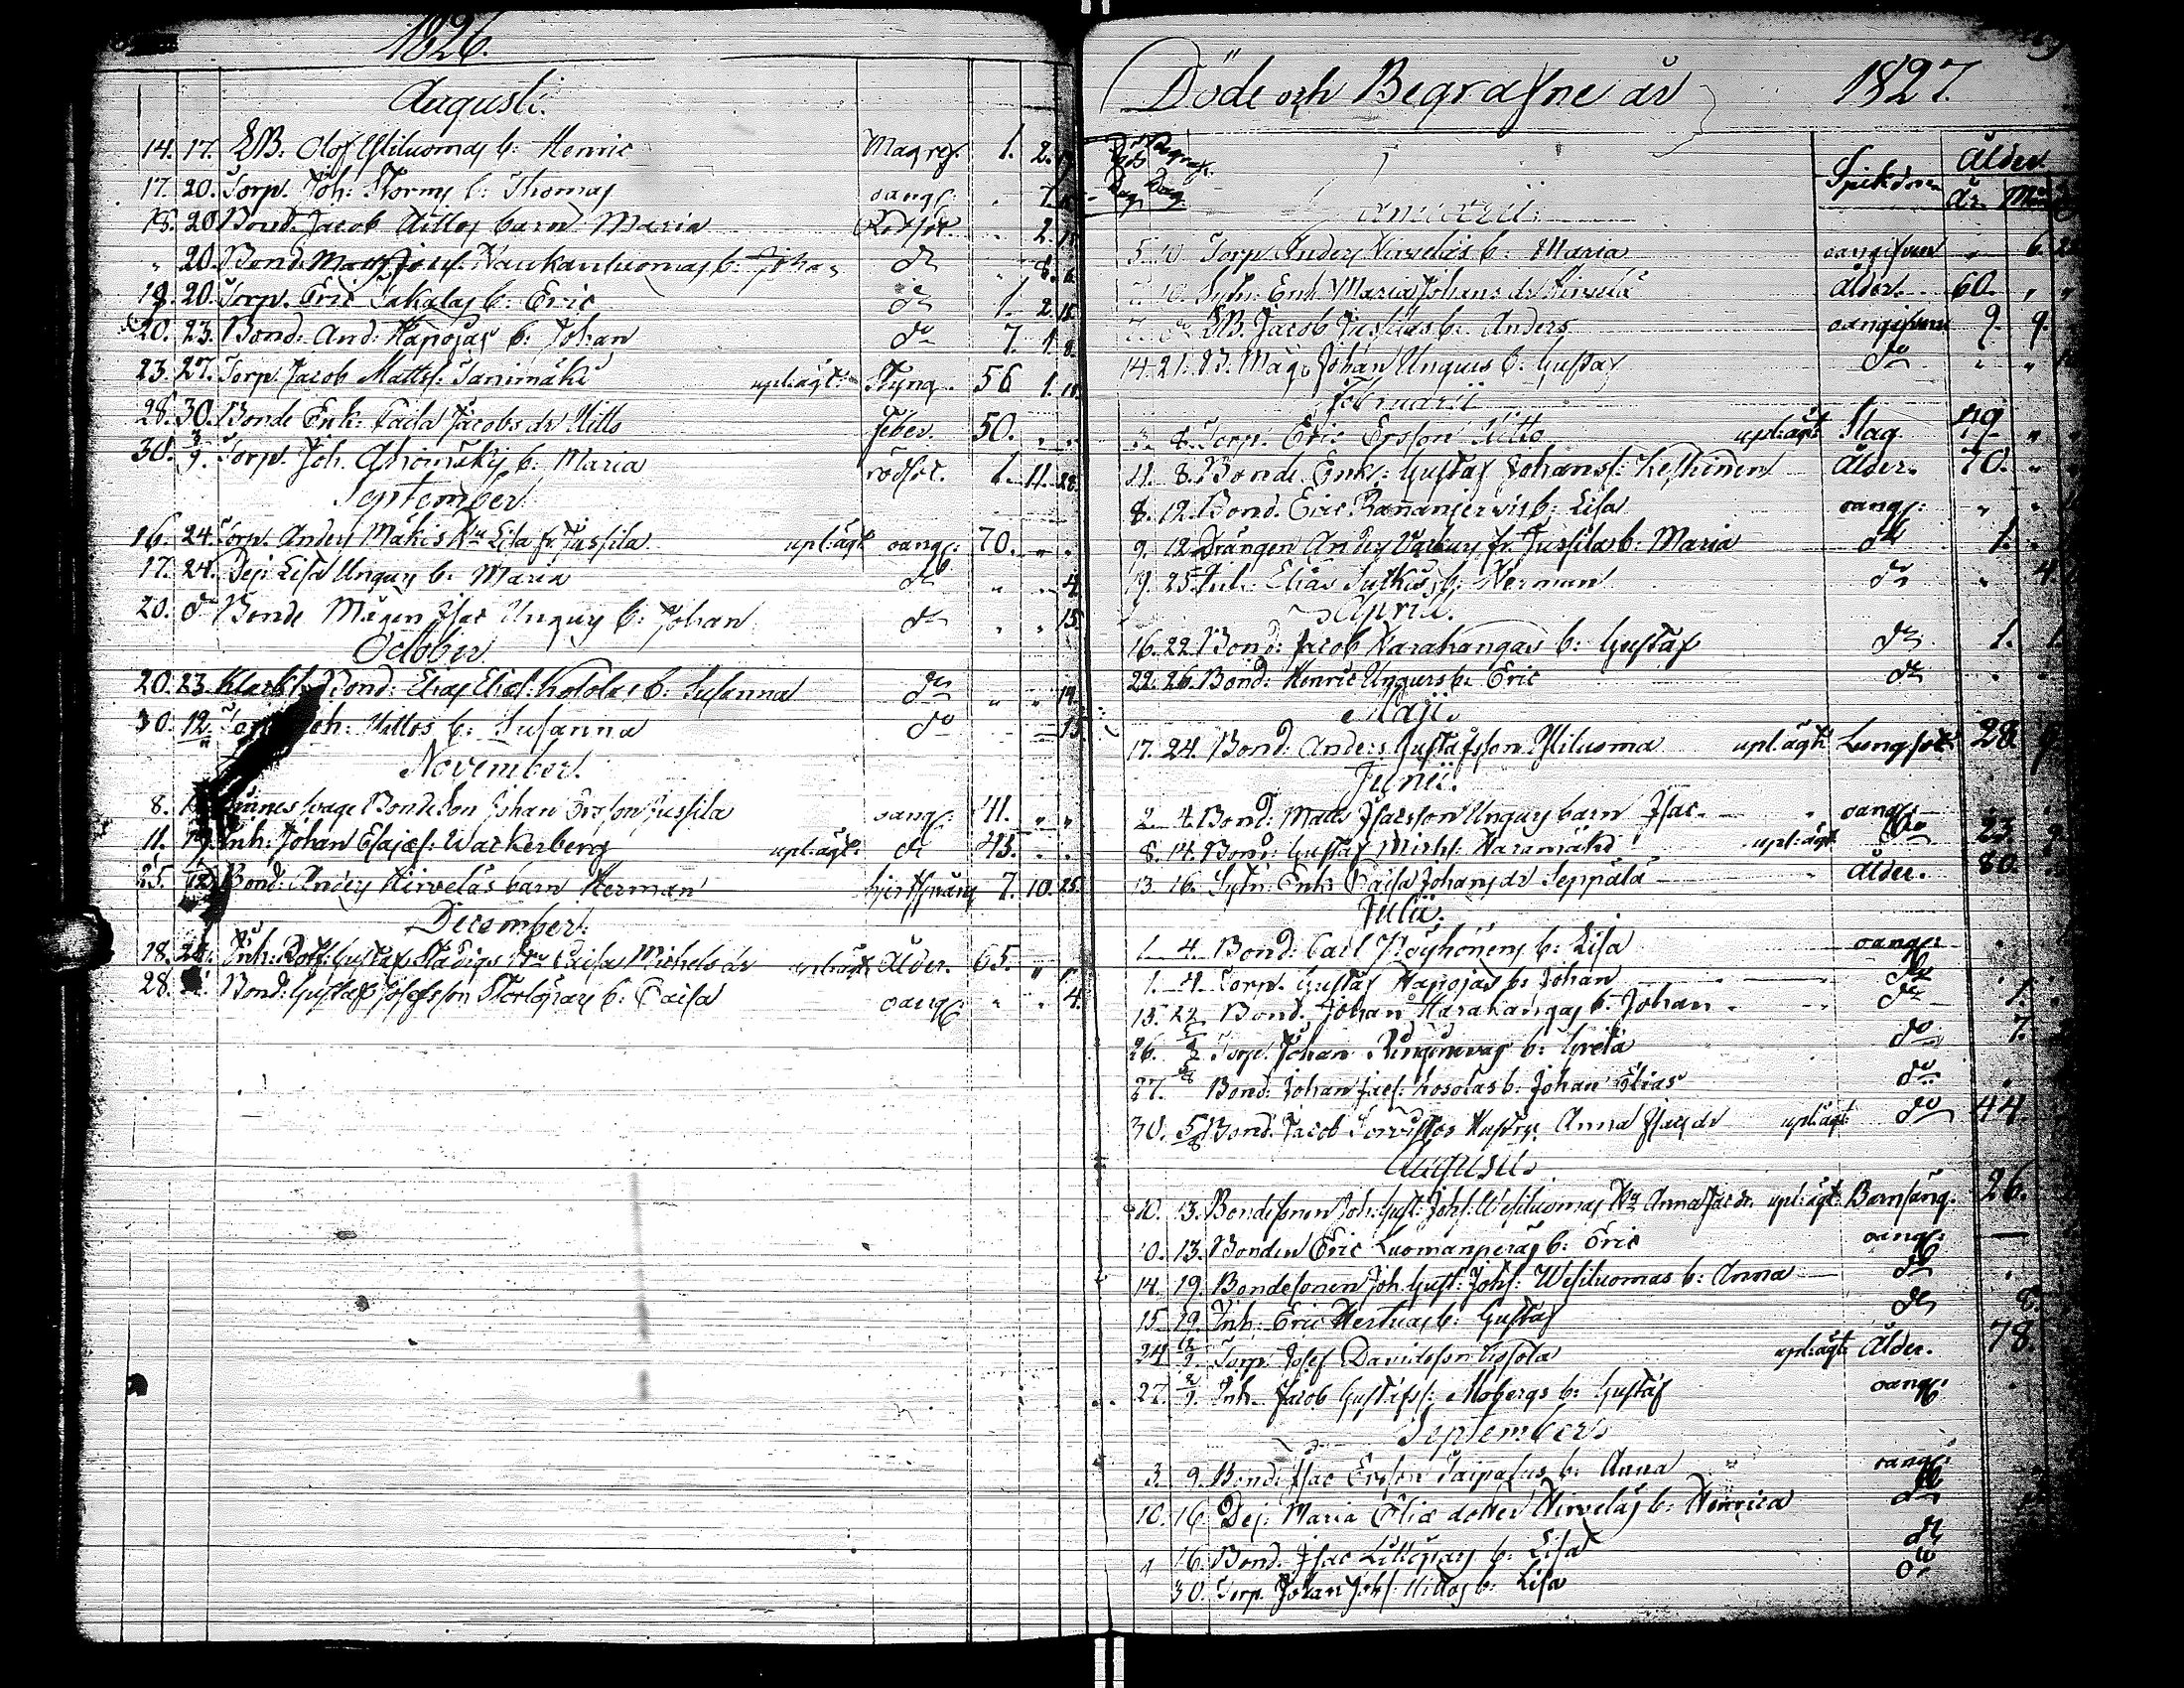 1826.
Augusti.
14. 17. SB. Olof Yliluomas b: Henric Magref. 1. 2.
17. 20. Torp. Joh: Storms b: Thomas oangf: 7.
18. 20 Bond. Jacob Uittos barn Maria Rödsot 2. 15
" 20. Bond. Matts Josef: Naukankuomas b: do 8. 6
19. 20. Torp. Eric Sakalas b: Eric do 1. 2. 15.
20. 23. Bond: And: Hapojas b: Johan do 7. 1. 8.
23. 27. Torp. Jacob Mattss: Tanimäki upl: ägt: Styng. 56 1.
28. 30. Bonde Enk. Caisa Jacobs dr Uitto feber. 50. " "
30. 3/9. Torp. Joh. Ahomäkis b: Maria rödsot. 1. 11. 28.
September
16. 24. Torp. Anders Mäkis Hu Lisa fr. Jussila upl: ägt oangf: 70. " "
17. 24. Pig: Lisa Ungus b: Maria do " " 4
20. do Bonde Mågen Isac Ungus b: Johan do " " 15.
October
20. 23. Bond: Elias Elias: Kosolas b: Susanna do " " 14.
30. 12/11 Joh: Uittos b: Susanna do 15
November.
8. Bonde Son Johan Ersson Jussila oangf: 41. " "
11. Inh: Johan Esaias: Wackerberg upl: ägt: do 43. . .
25. Bond: Anders Hirveläs barn Herman 7. 10. 25.
December.
18. 26. Inh: Rotf: Gustaf Stadigs Hu Caisa Michels dr upl: ägt Ålder. 65. "
28. Bond: Gustaf Josefsson Storlöpas b: Caisa oangf: " . 4.
Döde och Begrafne år 1827.
Död Dag Begraf. Dag Sjukdom Ålder År M
Januarii.
5. 10 Torp. Anders Hirveläs b: Maria oangifven " 6.
10. Sytn: Enk. Maria Johans dr Hirvelä Ålder. 60. " "
7. do SB. Jacob Jussilas b: Anders oangifven 9. 9.
14. 21. B. Måg. Johan Ungus b: Gustaf do " "
Februarii
3. 8. Torp. Eric Ersson Uitto upl: ägt Slag 49 " "
8. Bonde Enkl: Gustaf Johans: Keskinen Ålder. 70. "
8. 12. Bond. Eric Rananjervis b: Lisa oangf: "
9. 12. Drängen Anders Warkus fr. Jussila b: Maria do 1. "
19. 25. Inh. Elias Sutkis b: Herman do " 4
April.
16. 22. Bond: Jacob Harahangas b: Gustaf do 1. 1.
22. 26. Bond: Henric Ungus b: Eric do
Maji.
17. 24. Bond: Anders Gustafsson Yliluoma upl: ägt Lungsot 28.
Junii.
2. 4. Bond: Matts Isacsson Ungus barn Isac oangf:
8. 14. Bond: Gustaf Michs: Haramäki upl: ägt do 23.
13. 16. Sytn: Enk: Caisa Johans dr Seppälä Ålder. 80.
Julii.
1. 4. Bond: Carl Pöyhönens b: Lisa oangf:
1. 4. Torp. Gustaf Hapojas b: Johan do
15. 22 Bond. Johan Harahangas b: Johan do 1.
26. Torp. Johan b: Greta do 7.
27. Bond: Johan Jacs: Kosolas b: Johan Elias do
30. 5/8 Bond. Jacob Torvistos Hustru Anna Isacs dr upl: ägt do 44.
Augusti.
10. 13. Bondesonen Joh: Gust: Johs: Wesiluomas Hu Anna Jac dr upl: ägt. Barnsäng. 26.
10. 13. Bonden Eric Luomanperäs b: Eric oangf: —
14. 19. Bondesonen Joh. Gust: Johs: Wesiluomas b: Anna do
15. 19. Inh: Eric Hertuas b: Gustaf do 8.
24 Torp. Josef Davidsson Kosola upl: ägt Ålder. 78.
27. 2/9. Inh. Jacob Gustafss: Mobergs b: Gustaf oangf:
September
3. 9. Bond: Isac Ersson Saipakas b: Anna oangf:
10. 16 Pig: Maria Elias dotter Hirveläs b: Henrica do
16. Bond. Isac Lillöpas b: Lisa do
30. Torp. Johan Johs: Uittos b: Lisa do